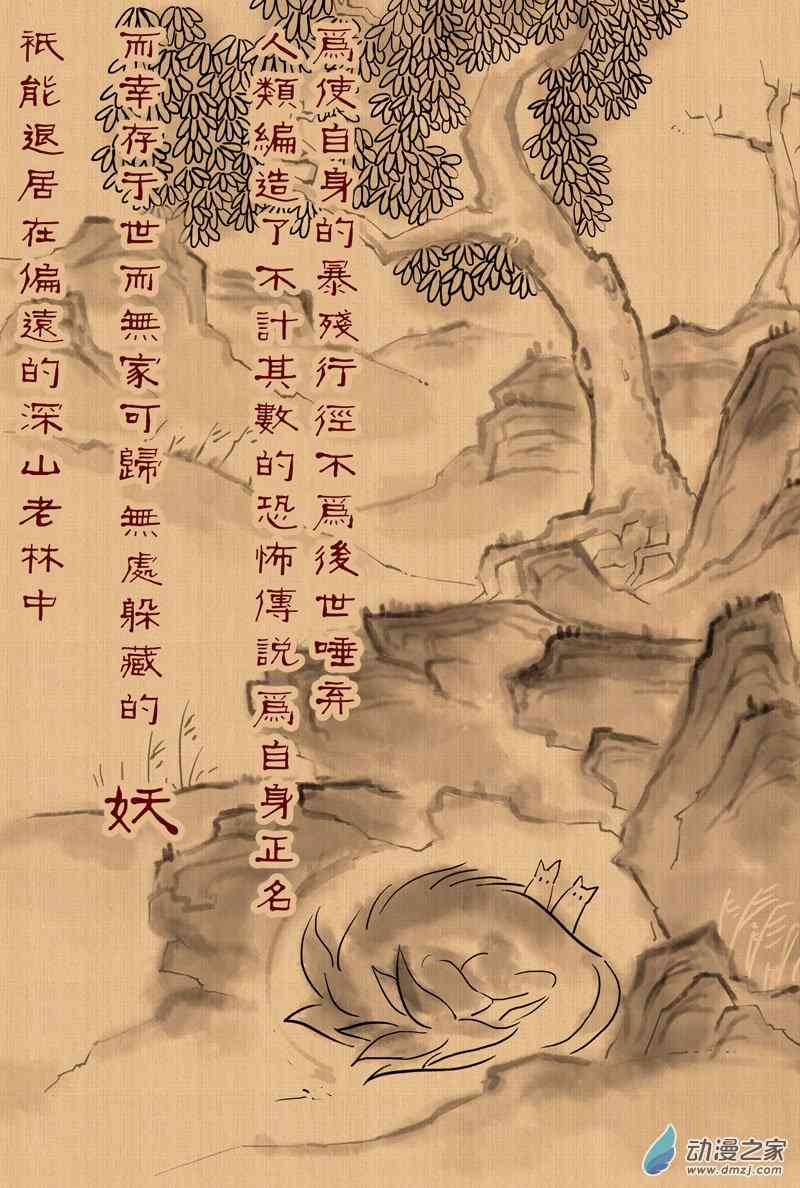 爲使自身的暴殘行徑不爲後世唾弃
人類編造了不計其數的恐怖傳説爲自身正名
而幸存于世而無家可歸無處躲藏的
妖
衹能退居在偏遠的深山老林中
动漫之家
www.dmzj.com